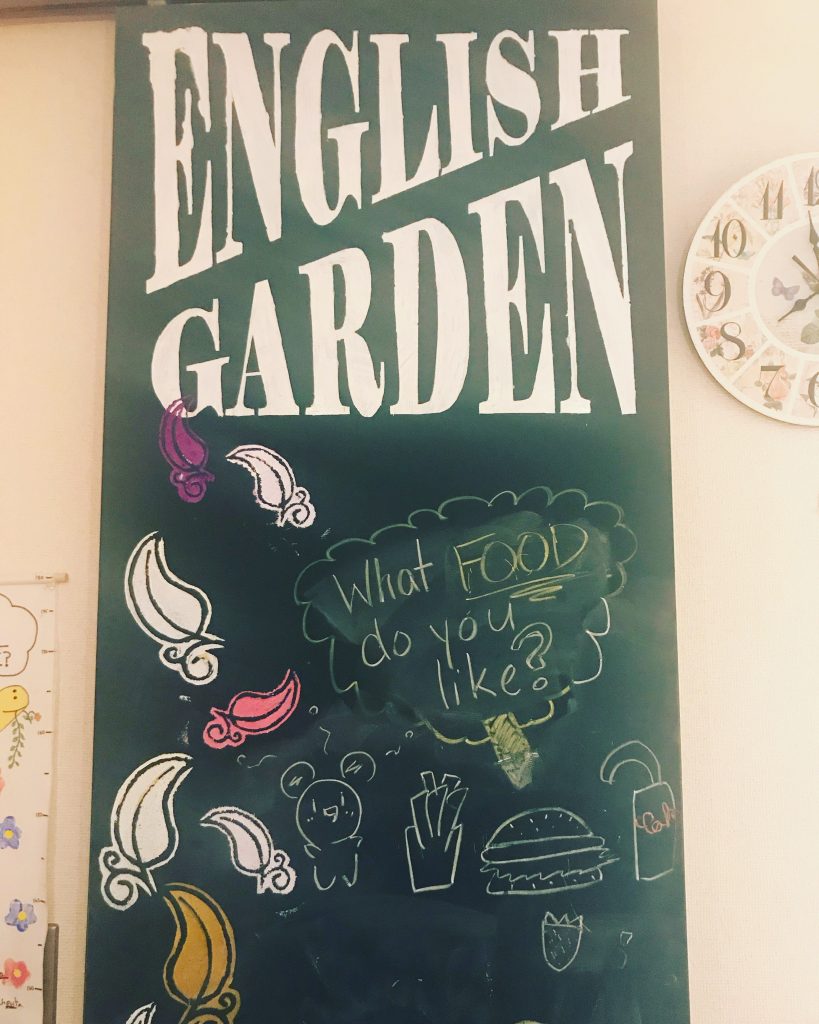 ENGLISH
GARDEN
What FOOD
do you
like?
12
11
10
9
8
7
6